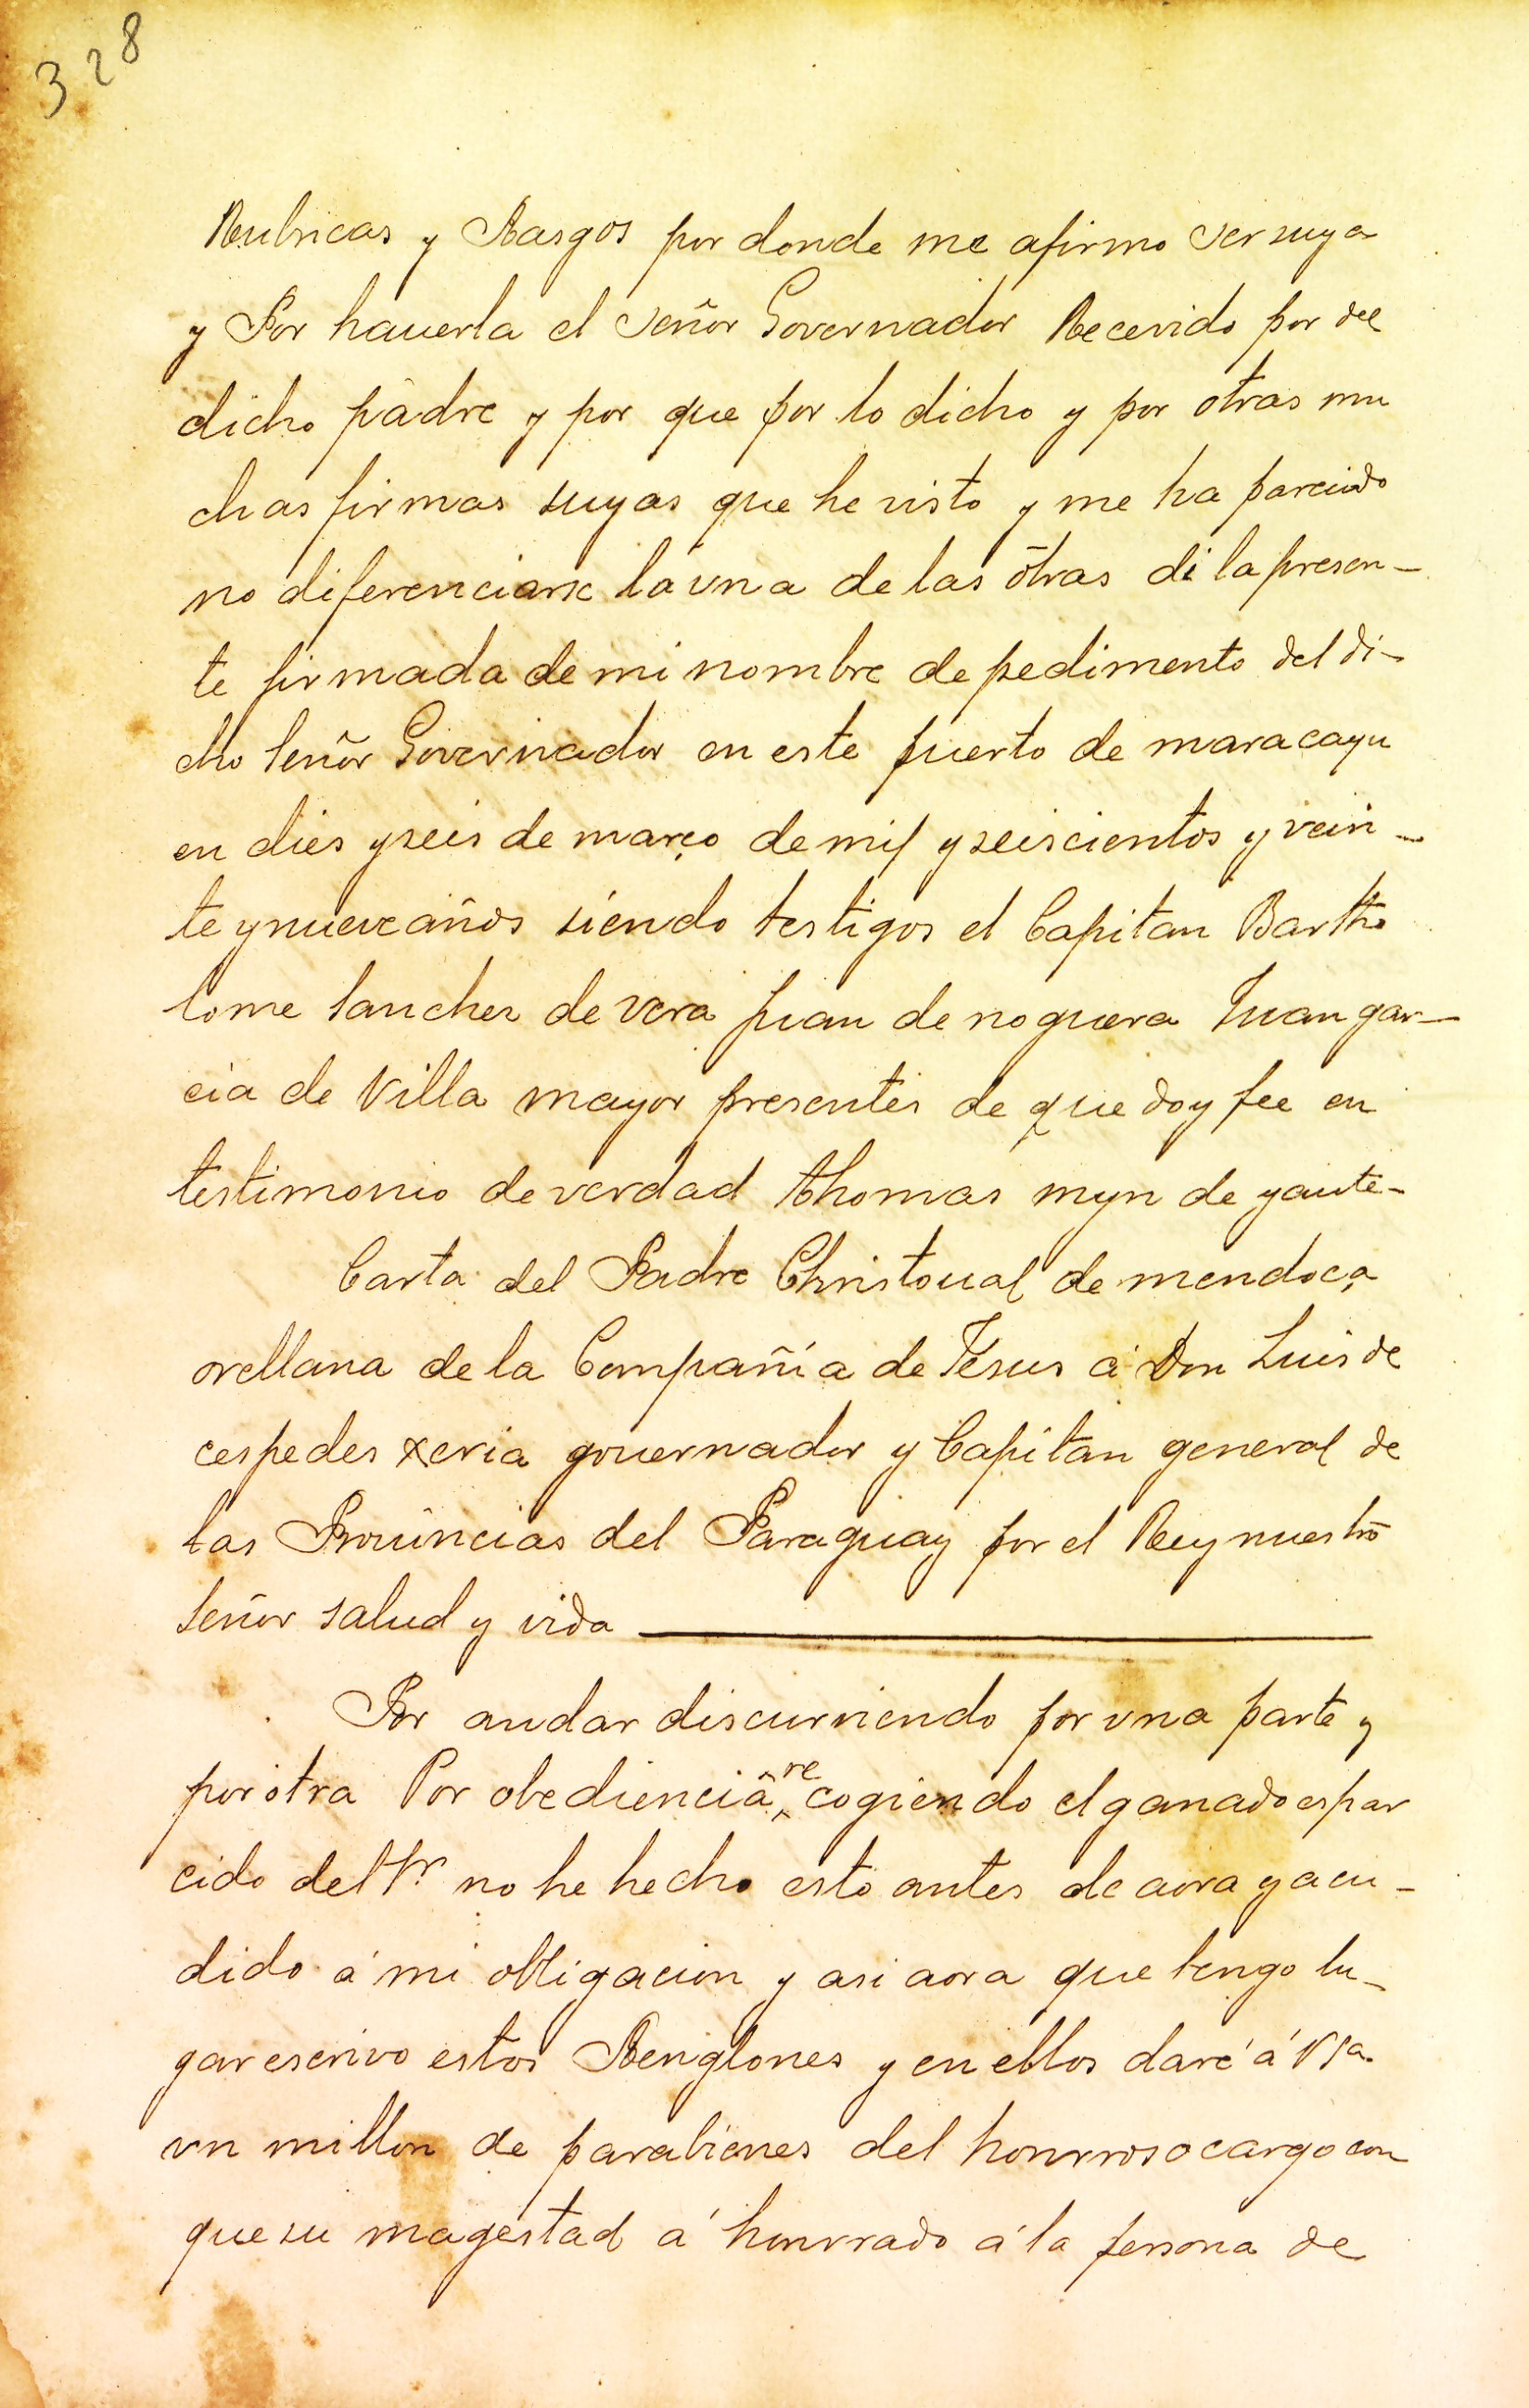 328
Rubricas y Rasgos por donde me afirmo ser suya
y Por hauerla el señor Governador Recevido por del
dicho padre y por que por lo dicho y por otras mu
chas firmas suyas que he visto y me ha parecido
no diferenciarse la vna de las otras di la presen-
te firmada de mi nombre de pedimento del di-
cho señor Governador en este puerto de maracayu
en dies y seis de março de mil y seiscientos y vein-
te y nueve años siendo testigos el Capitan Bartho
lome sanchez de vera juan de noguera Juan gar-
cia de Villa mayor presentes de que doy fee en
testimonio de verdad thomas myn de yante-
Carta del Padre Christoual de mendoça
orellana de la Compañia de Jesus á Don Luis de
cespedes xeria gouernador y Capitan general de
las Prouincias del Paraguay por el Rey nuestro
señor salud y vida
Por andar discurriendo por vna parte y
por otra Por obediencia recogiendo el ganado espar
cido del Sr no he hecho esto antes de aora y acu-
dido á mi obligacion y asi aora que tengo lu-
gar escrivo estos Renglones y en ellos daré á Vsa.
vn millon de parabienes del honrroso cargo con
que su magestad á honrrado á la persona de